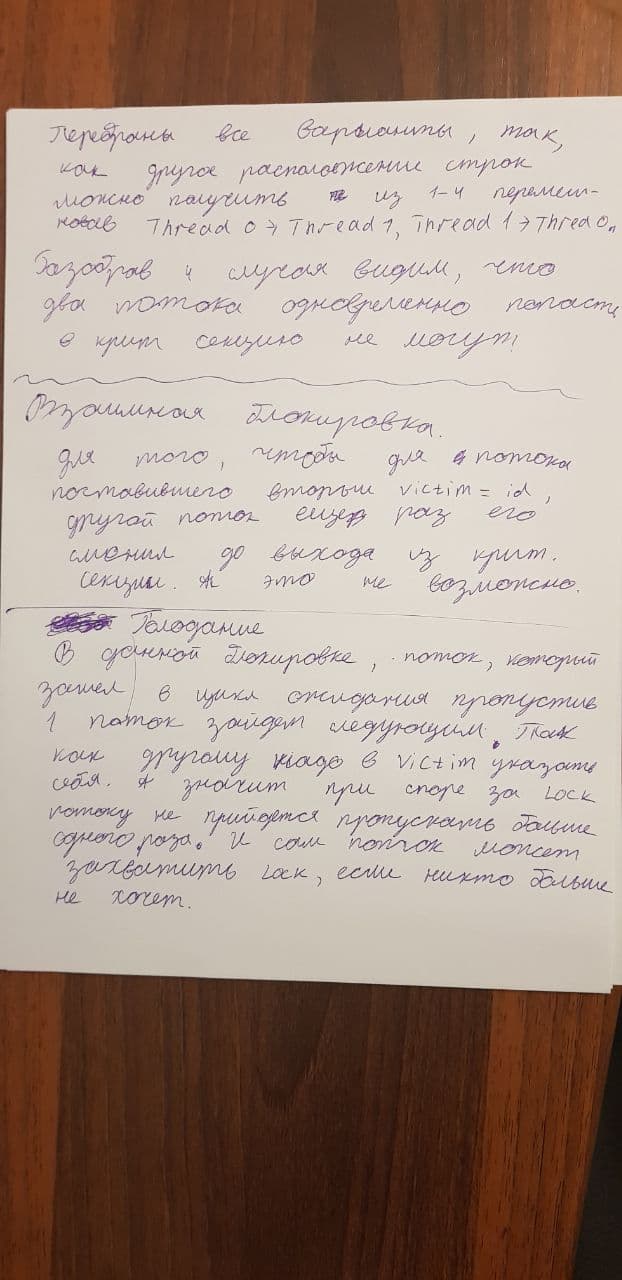 Перебраны все варианты, так,
как другое расположение строк
можно получить из 1-4 переимен-
новав Thread 0 → Thread 1, Thread 1 → Thred 0.
Разобрав 4 случая видим, что
два потока одновременно попасть
в крит секцию не могут!
Взаимная блокировка.
Для того, чтобы для потока
поставившего вторым victim = id,
другой поток еще раз его
сменил до выхода из крит.
секции. А это не возможно.
Голодание
В данной блокировке, поток, который
зашел в цикл ожидания пропустив
1 поток зайдет следующим. Так
как другому надо в victim указать
себя. А значит при споре за Lock
потоку не прийдется пропускать больше
одного раза. И сам поток может
захватить Lock, если никто больше
не хочет.